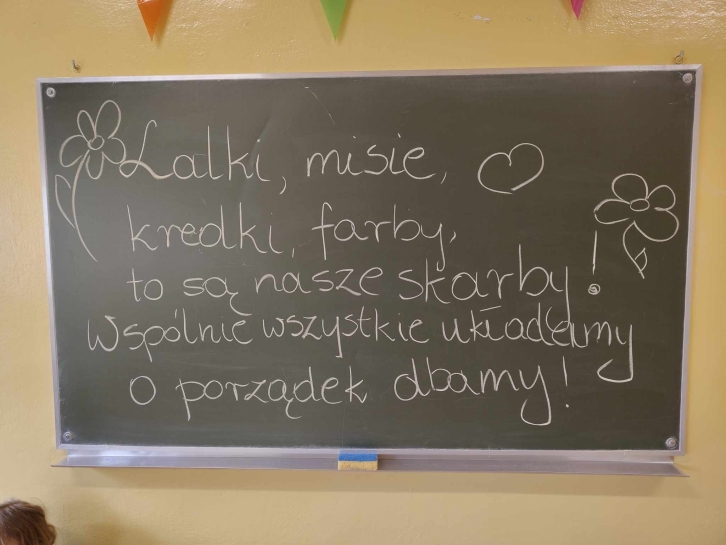 Lalki, misie,
kredki, farby,
to są nasze skarby!
Wspólnie wszystkie układamy
o porządek dbamy!